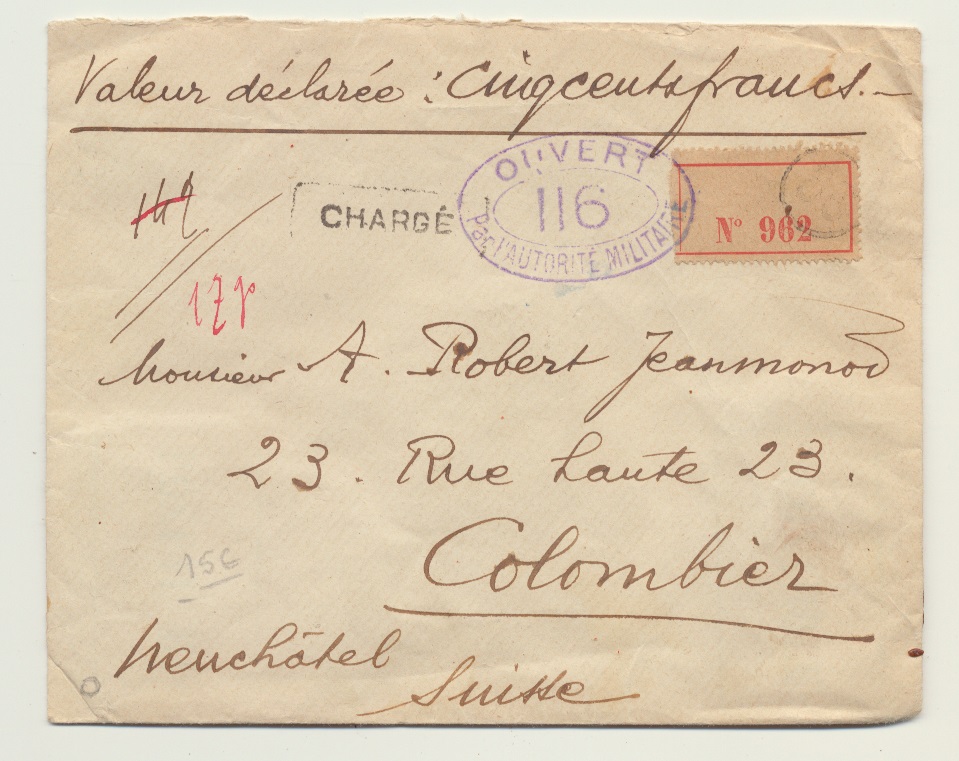 Valeur déclarée : Cinqcentsfrancs.—
OUVERT
116
Par l'AUTORITÉ MILITAIRE
CHARGÉ
Nº 962
Monsieur A. Robert Jeanmonod
23. Rue haute 23.
15€
Colombier
Neuchâtel
Suisse